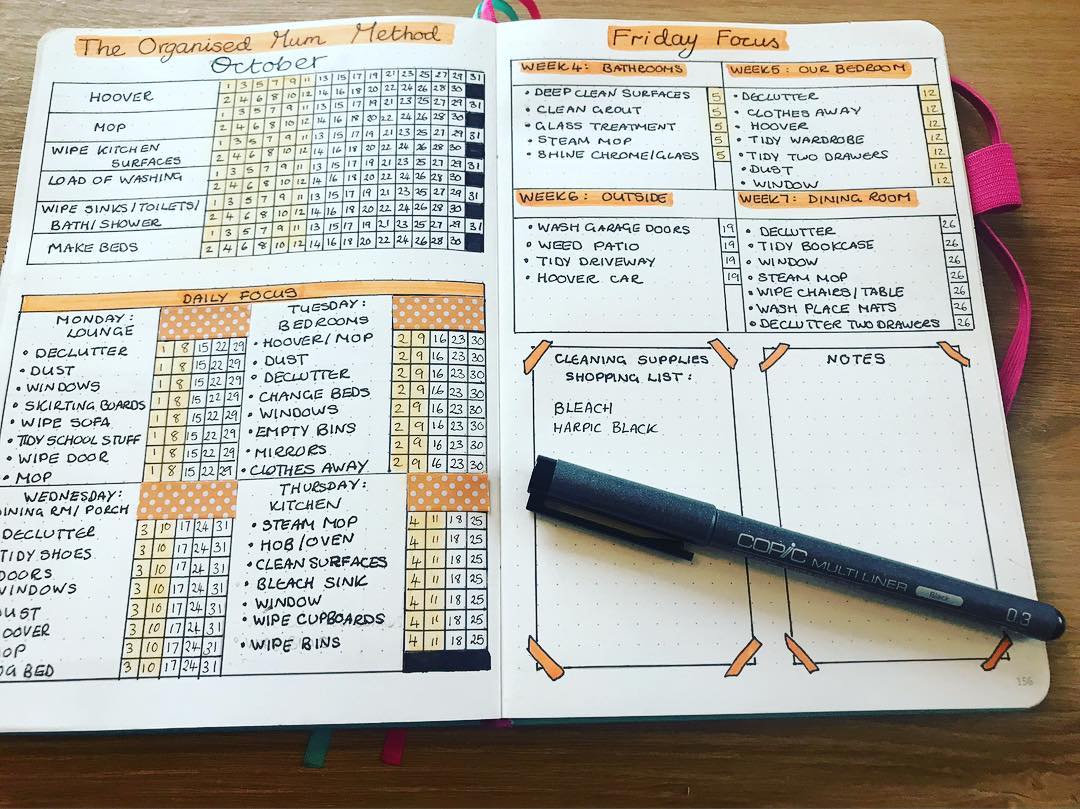 The Organised Mum Method
October
HOOVER
1 3 5 7 9 11 13 15 17 19 21 23 25 27 29 31
2 4 6 8 10 12 14 16 18 20 22 24 26 28 30
MOP
1 3 5 7 9 11 13 15 17 19 21 23 25 27 29 31
2 4 6 8 10 12 14 16 18 20 22 24 26 28 30
WIPE KITCHEN
SURFACES
1 3 5 7 9 11 13 15 17 19 21 23 25 27 29 31
2 4 6 8 10 12 14 16 18 20 22 24 26 28 30
LOAD OF WASHING
1 3 5 7 9 11 13 15 17 19 21 23 25 27 29 31
2 4 6 8 10 12 14 16 18 20 22 24 26 28 30
WIPE SINKS/TOILETS/
BATH/SHOWER
1 3 5 7 9 11 13 15 17 19 21 23 25 27 29 31
2 4 6 8 10 12 14 16 18 20 22 24 26 28 30
MAKE BEDS
1 3 5 7 9 11 13 15 17 19 21 23 25 27 29 31
2 4 6 8 10 12 14 16 18 20 22 24 26 28 30
DAILY FOCUS
MONDAY:
LOUNGE
• DECLUTTER 1 8 15 22 29
• DUST 1 8 15 22 29
• WINDOWS 1 8 15 22 29
• SKIRTING BOARDS 1 8 15 22 29
• WIPE SOFA 1 8 15 22 29
• TIDY SCHOOL STUFF 1 8 15 22 29
• WIPE DOOR 1 8 15 22 29
• MOP 1 8 15 22 29
TUESDAY:
BEDROOMS
• HOOVER/MOP 2 9 16 23 30
• DUST 2 9 16 23 30
• DECLUTTER 2 9 16 23 30
• CHANGE BEDS 2 9 16 23 30
• WINDOWS 2 9 16 23 30
• EMPTY BINS 2 9 16 23 30
• MIRRORS 2 9 16 23 30
• CLOTHES AWAY 2 9 16 23 30
WEDNESDAY:
DINING RM/ PORCH
DECLUTTER 3 10 17 24 31
TIDY SHOES 3 10 17 24 31
DOORS 3 10 17 24 31
WINDOWS 3 10 17 24 31
DUST 3 10 17 24 31
OOVER 3 10 17 24 31
OP 3 10 17 24 31
OG BED 3 10 17 24 31
THURSDAY:
KITCHEN
• STEAM MOP 4 11 18 25
• HOB/OVEN 4 11 18 25
• CLEAN SURFACES 4 11 18 25
• BLEACH SINK 4 11 18 25
• WINDOW 4 11 18 25
• WIPE CUPBOARDS 4 11 18 25
• WIPE BINS 4 11 18 25
Friday Focus
WEEK 4: BATHROOMS
• DEEP CLEAN SURFACES 5
• CLEAN GROUT 5
• GLASS TREATMENT 5
• STEAM MOP 5
• SHINE CHROME/GLASS 5
WEEK 5: OUR BEDROOM
• DECLUTTER 12
• CLOTHES AWAY 12
• HOOVER 12
• TIDY WARDROBE 12
• TIDY TWO DRAWERS 12
• DUST 12
• WINDOW 12
WEEK 6: OUTSIDE
• WASH GARAGE DOORS 19
• WEED PATIO 19
• TIDY DRIVEWAY 19
• HOOVER CAR 19
WEEK 7: DINING ROOM
• DECLUTTER 26
• TIDY BOOKCASE 26
• WINDOW 26
• STEAM MOP 26
• WIPE CHAIRS/TABLE 26
• WASH PLACE MATS 26
• DECLUTTER TWO DRAWERS 26
CLEANING SUPPLIES
SHOPPING LIST:
BLEACH
HARPIC BLACK
NOTES
COPIC MULTILINER Black 0.3
156